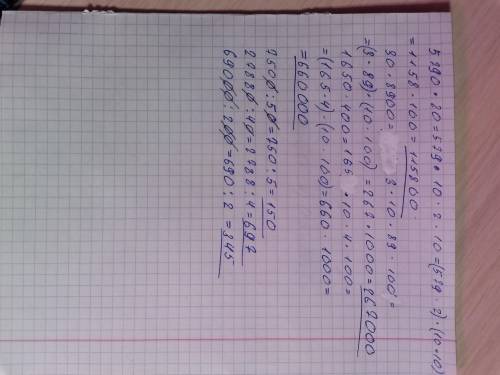 5790·20=579·10·2·10=(579·2)·(10·10)
=1158·100=115800
30·8900= 3·10·89·100=
=(3·89)·(10·100)=267·1000=267000
1650·400=165·10·4·100=
=(165·4)·(10·100)=660·1000=
=660000
7500:50=750:5=150
27880:40=2788:4=697
69000:200=690:2=345